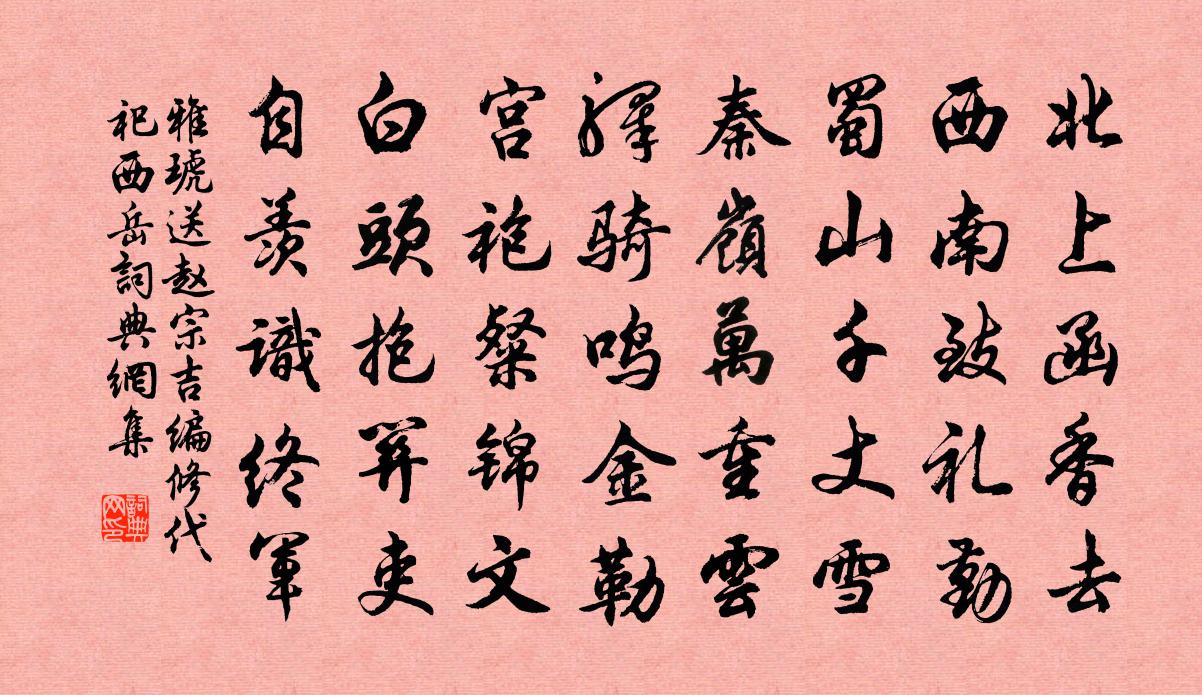 北上函香去
西南致礼勤
蜀山千丈雪
秦嶺萬重雲
驛骑鸣金勒
宫袍粲锦文
白頭抱関吏
自羡識终軍
雅琥送赵宗吉编修代
祀西岳詞典網集
詞典网印